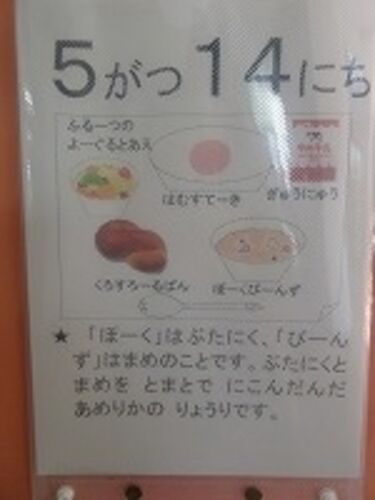 5がつ14にち
ふるーつの
よーぐるとあえ
はむすてーき
ぎゅうにゅう
くろすろーるぱん
ぽーくびーんず
★ 「ぽーく」はぶたにく、「びーん
ず」はまめのことです。ぶたにくと
まめを とまとで にこんだんだ
あめりかの りょうりです。